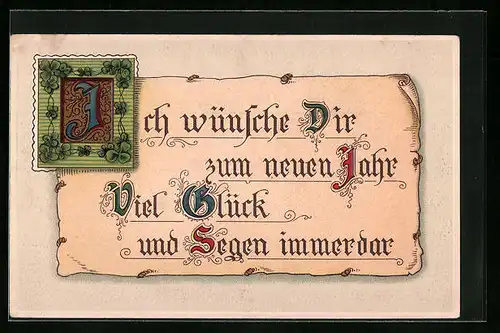 Ich wünſche Dir
zum neuen Jahr
Viel Glück
und Segen immerdar